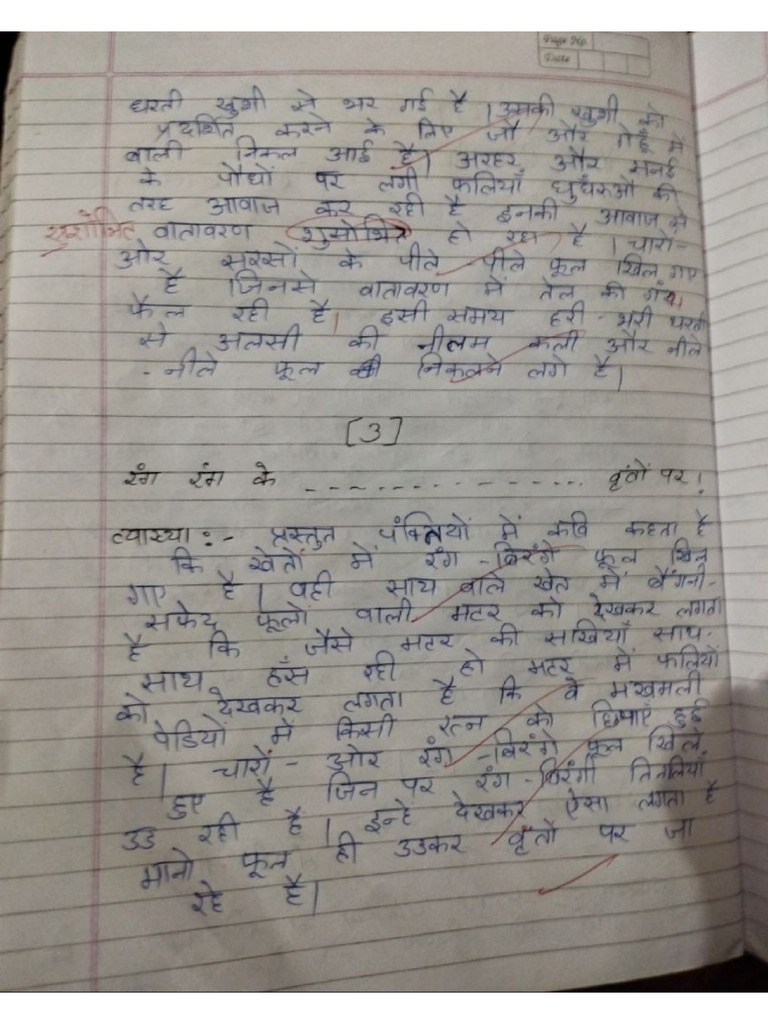 Page No.
Date
धरती खुशी से भर गई है। उसकी खुशी को
प्रदर्शित करने के लिए जौ और गेहूँ में
बाली निकल आई है। अरहर और सनई
के पौधों पर लगी फलियाँ घुँघरुओं की
तरह आवाज कर रही है इनकी आवाज से
सुशोभित वातावरण शुसोभित हो रहा है। चारों-
ओर सरसों के पीले-पीले फूल खिल गए
है जिनसे वातावरण में तेल की गंध
फैल रही है। इसी समय हरी-भरी धरती
से अलसी की नीलम कली और नीले
-नीले फूल निकलने लगे है।
[3]
रंग रंग के --------------- वृंतों पर।
व्याख्या:- प्रस्तुत पंक्तियों में कवि कहता है
कि खेतों में रंग-बिरंगे फूल खिल
गए है। वही साथ वाले खेत में बैंगनी-
सफेद फूलों वाली मटर को देखकर लगता
है कि जैसे मटर की सखियाँ साथ-
साथ हँस रही हो मटर में फलियों
को देखकर लगता है कि वे मखमली
पेडियों में किसी रत्न को छिपाएं हुई
है। चारों-ओर रंग-बिरंगे फूल खिले
हुए है जिन पर रंग-बिरंगी तितलियाँ
उड रही है। इन्हे देखकर ऐसा लगता है
मानो फूल ही उडकर वृंतों पर जा
रहे है।